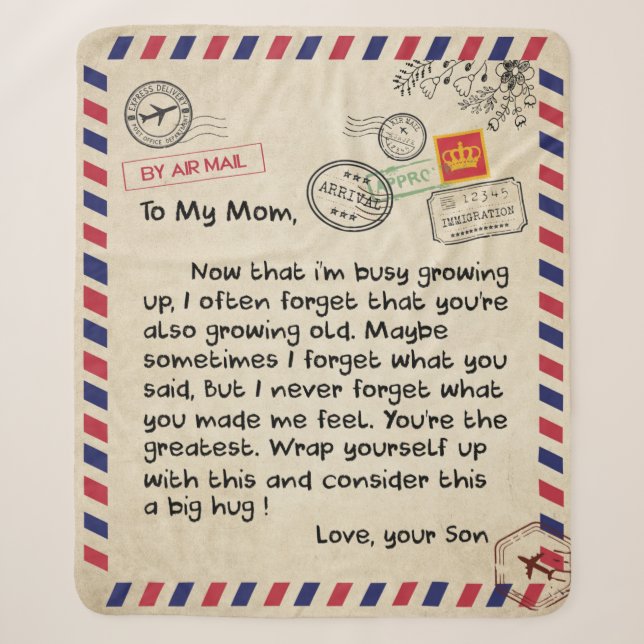 EXPRESS DELIVERY
POST OFFICE DEPARTMENT
BY AIR MAIL
AIR MAIL
ARRIVAL
APPRO
12345
IMMIGRATION
To My Mom,
Now that i'm busy growing
up, I often forget that you're
also growing old. Maybe
sometimes I forget what you
said, But I never forget what
you made me feel. You're the
greatest. Wrap yourself up
with this and consider this
a big hug !
Love, your Son